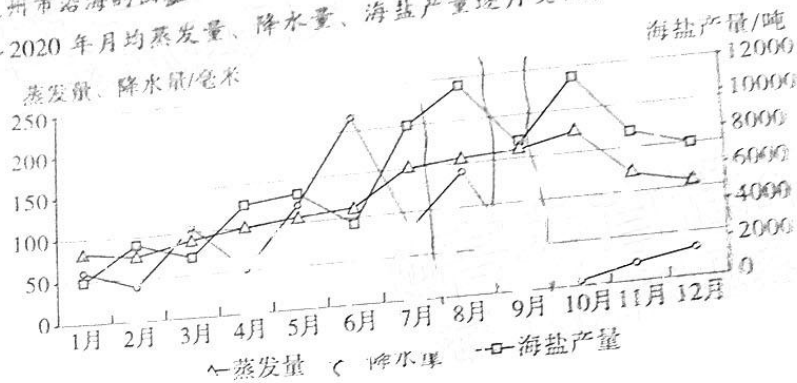 州市沿海的
2020年月均蒸发量、降水量、海盐产量逐月
海盐产量/吨
蒸发量、降水量/毫米
250
200
150
100
50
0
12000
10000
8000
6000
4000
2000
0
1月 2月 3月 4月 5月 6月 7月 8月 9月 10月 11月 12月
蒸发量 降水量 海盐产量